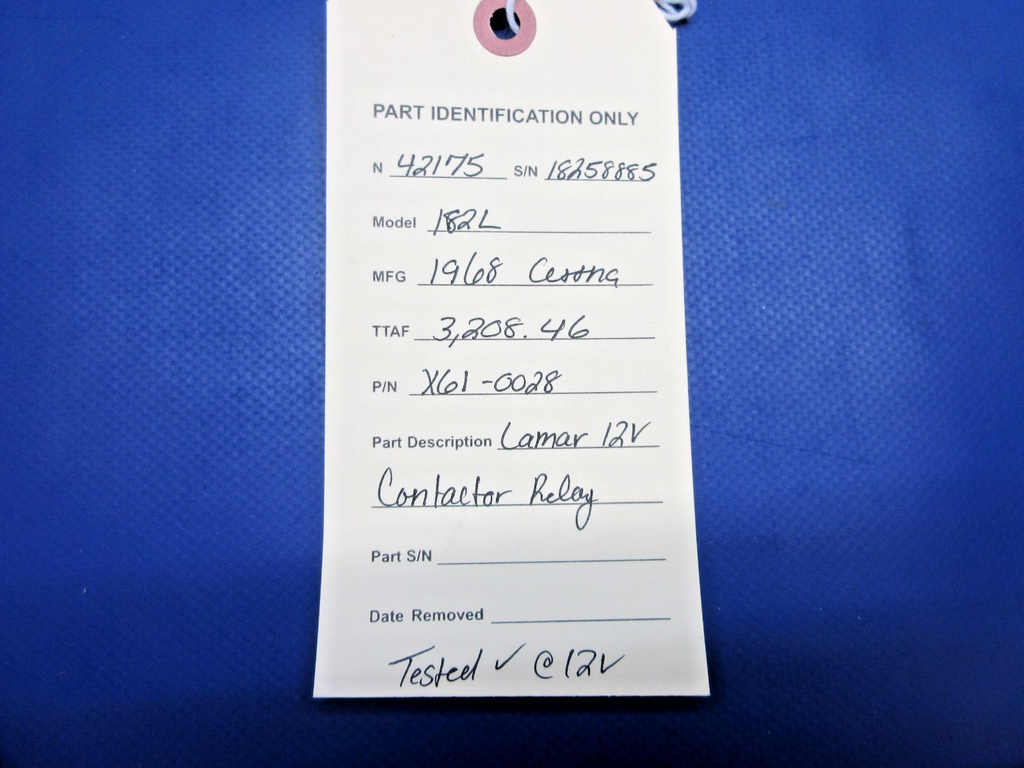 PART IDENTIFICATION ONLY
N 42175 S/N 18258885
Model 182L
MFG 1968 Cessna
TTAF 3,208.46
P/N X61-0028
Part Description Lamar 12V
Contactor Relay
Part S/N
Date Removed
Tested ✓ @ 12V